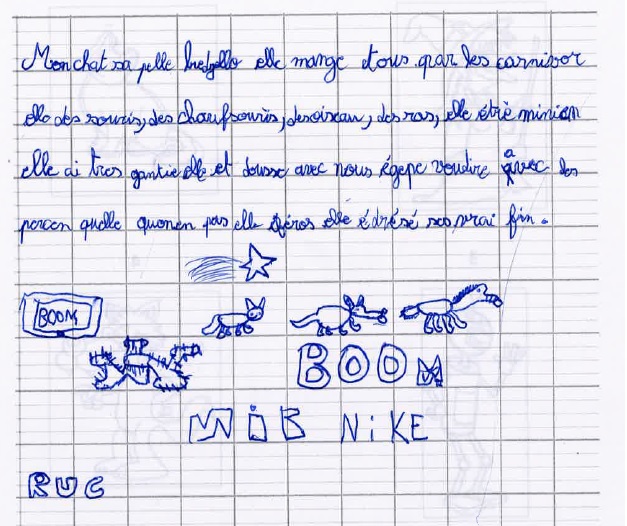 Mon chat sa pelle elle mange tous par les carnivor
elle des souris, des chaufsouris, desoiseau, des ras, elle étrè minion
elle ai tres gantie elle et dousse avec nous égepe voudire avec les
persen quelle quonen pas elle féros elle é drésé ses vrai fin.
BOOM
BOOM
WiB NiKE
RUC